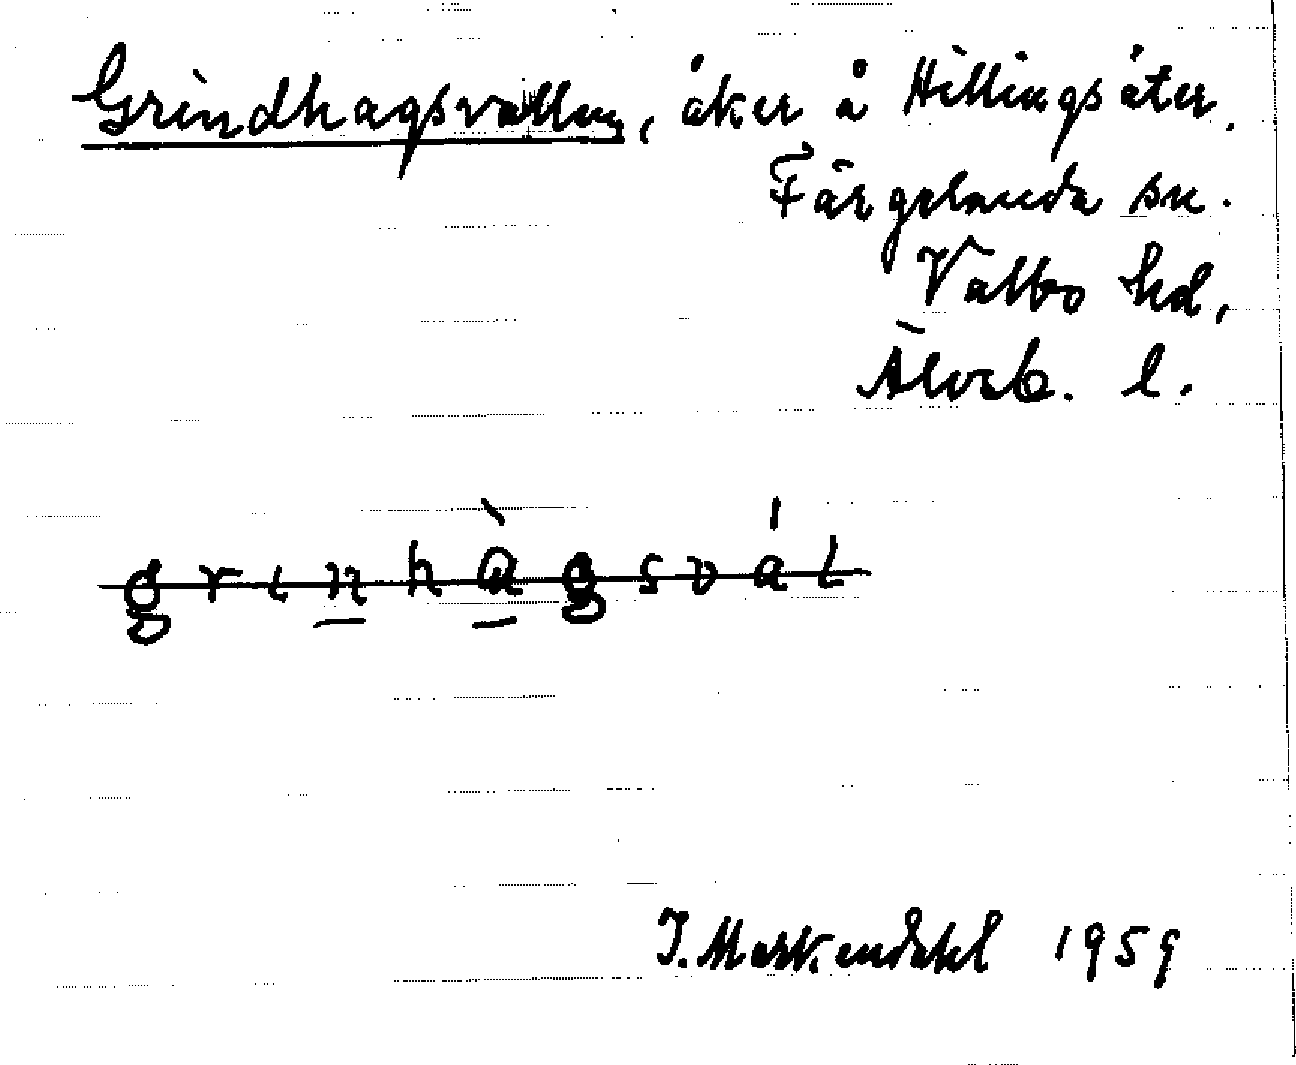 Grindhagsvallen, åker å Hillingsäter.
Färgelanda sn.
Valbo hd,
Älvsb. l.
grinhàgsvál
J. Markendahl 1959